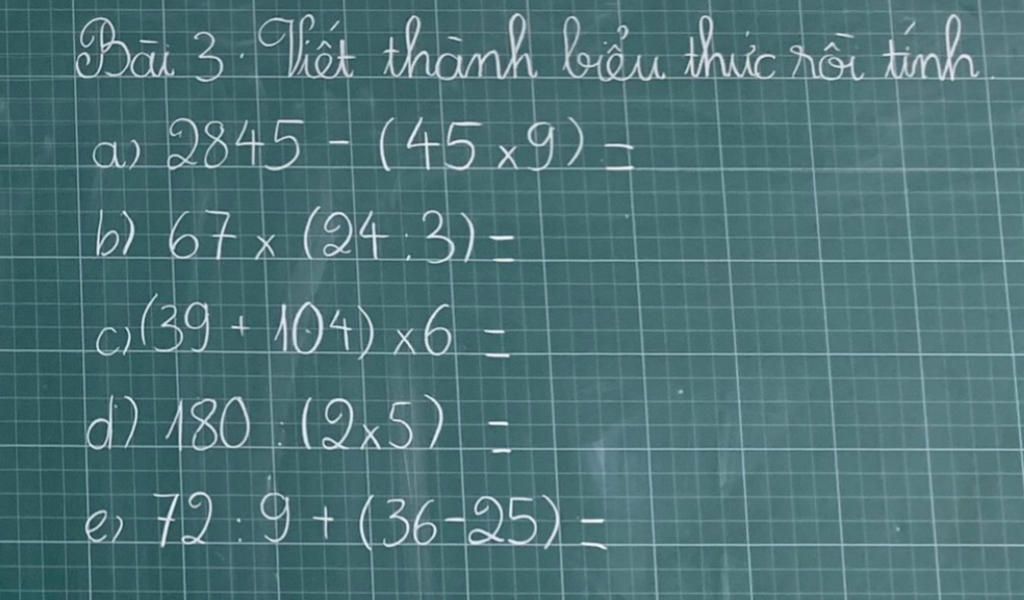 Bài 3. Viết thành biểu thức rồi tính.
a) 2845 - (45 x 9) =
b) 67 x (24 : 3) =
c) (39 + 104) x 6 =
d) 180 : (2 x 5) =
e) 72 : 9 + (36 - 25) =